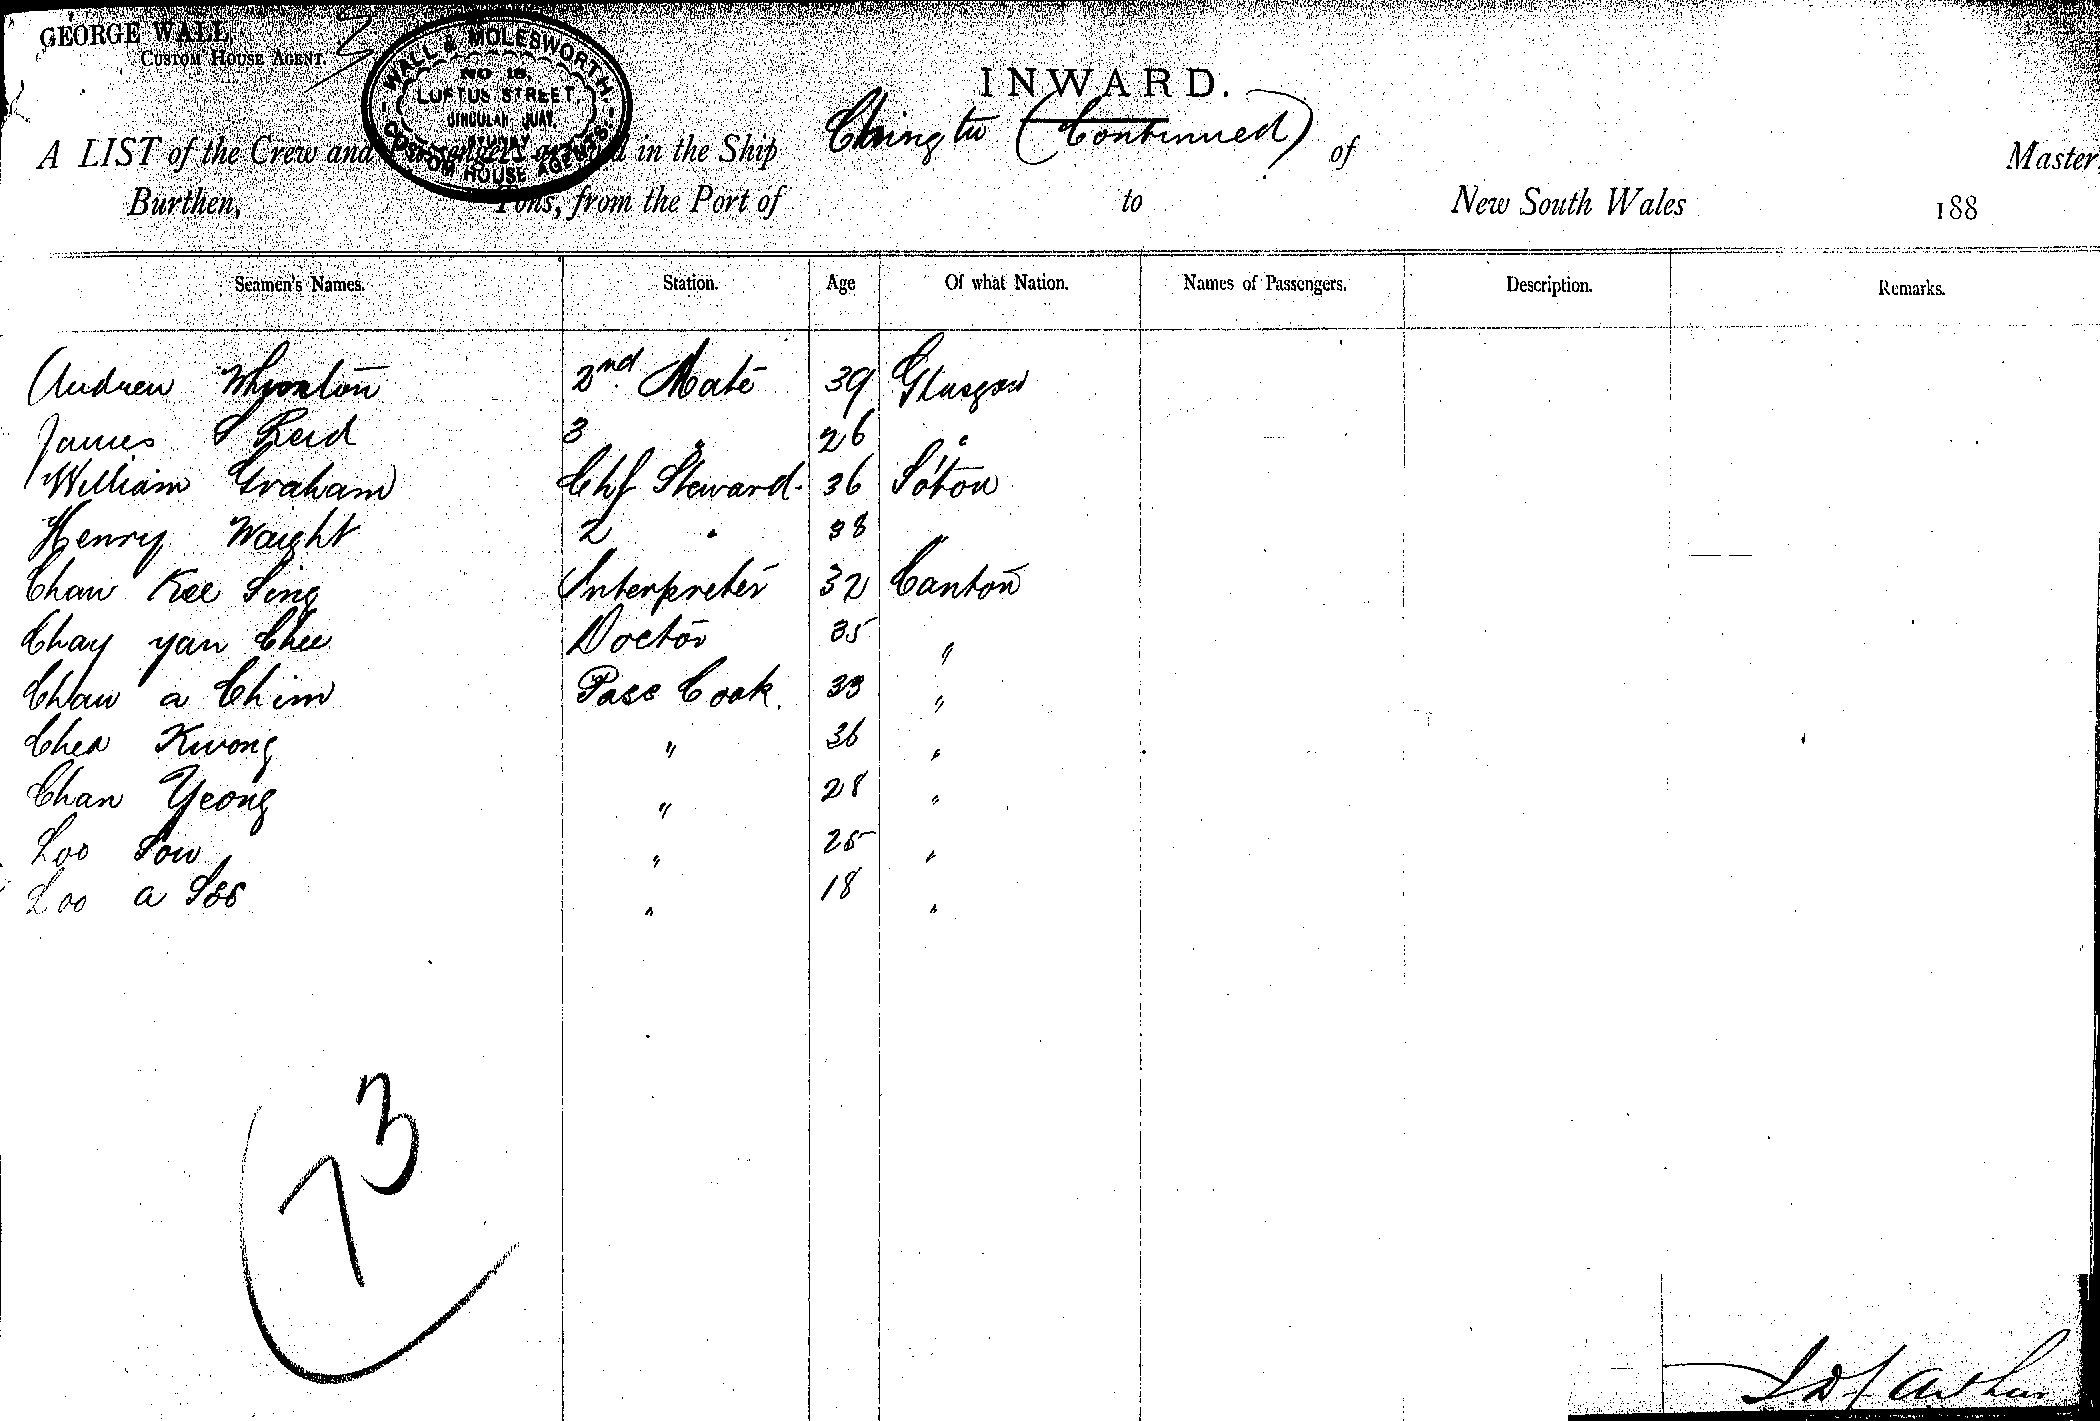 GEORGE WALL,
CUSTOM HOUSE AGENT.
WALL & MOLESWORTH
NO 15.
LOFTUS STREET,
CIRCULAR QUAY.
SYDNEY
CUSTOM HOUSE AGENTS
INWARD.
A LIST of the Crew and Passengers arrived in the Ship Chingtu (Continued) of Master,
Burthen, Tons, from the Port of to New South Wales 188
Seamen's Names. Station. Age Of what Nation. Names of Passengers. Description. Remarks.
Andrew 2nd Mate 39 Glasgow
James S Reid 3 26 "
William Graham Chf Steward. 36 So'ton
Henry Waight 2 " 38 "
Chan Kee Sing Interpreter 32 Canton
Chay yan Chee Doctor 35 "
Chau a Chim Pass Cook. 33 "
Kwong " 36 "
Chan Yeong " 28 "
Loo Sow " 25 "
Loo a " 18 "
73